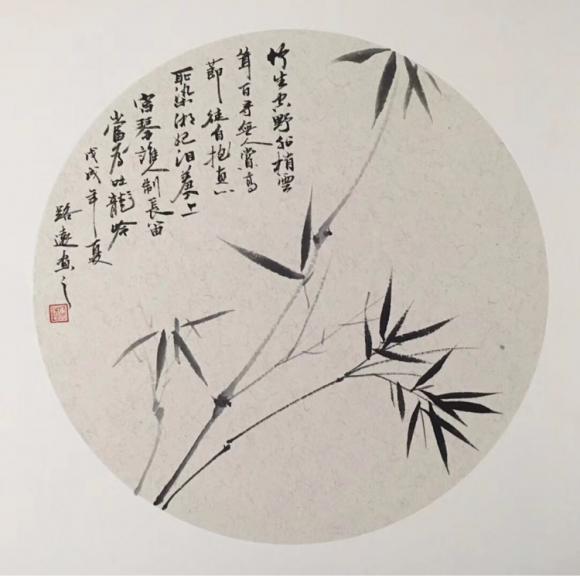 竹生空野外梢雲
聳百尋無人賞高
節徒自抱貞心
耻染湘妃泪羞上
宮琴誰制長笛
當為吐龍吟
戊戌年夏
路遠画之